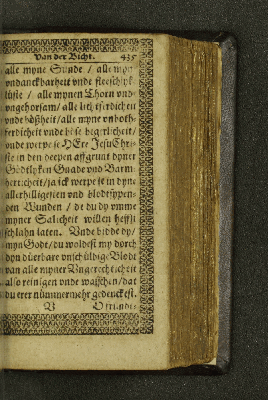 Van der Bicht. 435
alle myne Sünde / alle myn
vndanckbarheit vnde fleeschlyke
lüste / alle mynen Thorn vnde
vngehorsam / alle
vnde bößheit / alle myne vnboth-
ferdicheit vnde böse begerlicheit /
vnde werpe se HEre Jesu Chri-
ste in den deepen affgrunt dyner
Gödtlyken Gnade vnd Barm-
herticheit / ja ick werpe se in dyne
allerhilligesten vnd blodtsypen-
den Wunden / de du dy vmme
myner Salicheit willen heffst
schlahn laten. Vnde bidde dy /
myn Godt / du woldest my dorch
dyn düerbare vnschüldige Blodt
van alle myner Vngerechticheit
also reinigen vnde wasschen / dat
du erer nümmermehr gedenckest.
V